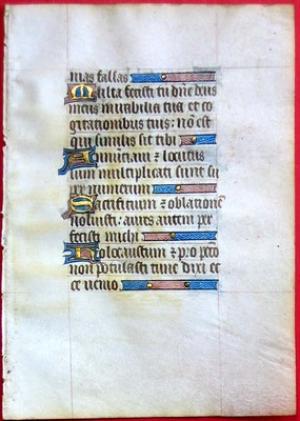 nias fallas
Multa fecisti tu dn̄e deus
meus mirabilia tua et co
gitationibus tuis: nō est
qui similis sit tibi
Annuciaui ⁊ locutus
sum multiplicati sunt su
per numerum
Sacrificium ⁊ oblationē
noluisti: aures autem per
fecisti michi
Holocaustum ⁊ pro pccō
non postulasti tunc dixi ec
ce uenio